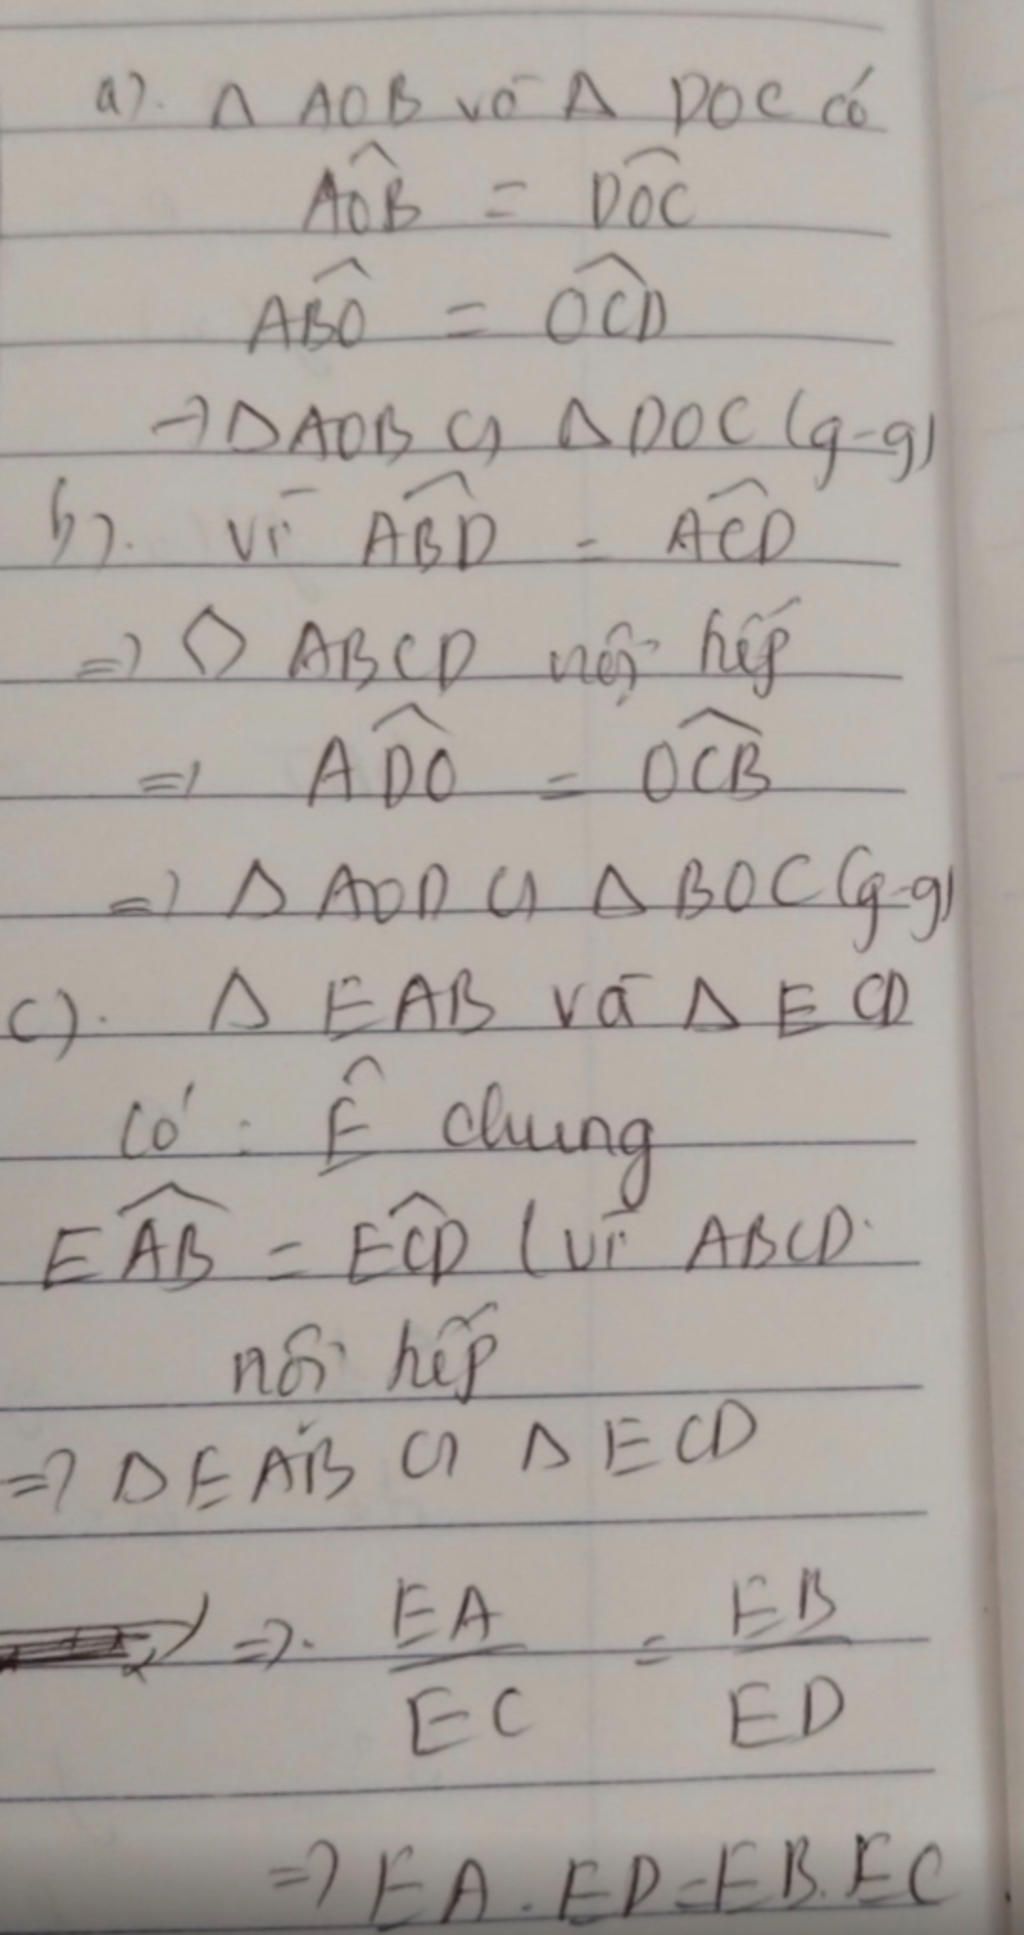 a). Δ AOB và Δ DOC có
AÔB = DÔC
AB̂O = OĈD
→ Δ AOB ∽ Δ DOC (g-g)
b). vì AB̂D = AĈD
=> ◇ ABCD nội tiếp
=> AD̂O = OĈB
=> Δ AOD ∽ Δ BOC (g-g)
c). Δ EAB và Δ ECD
có : Ê chung
EÂB = EĈD (vì ABCD
nội tiếp
=> Δ EAB ∽ Δ ECD
=> EA/EC = EB/ED
=> EA . ED = EB . EC